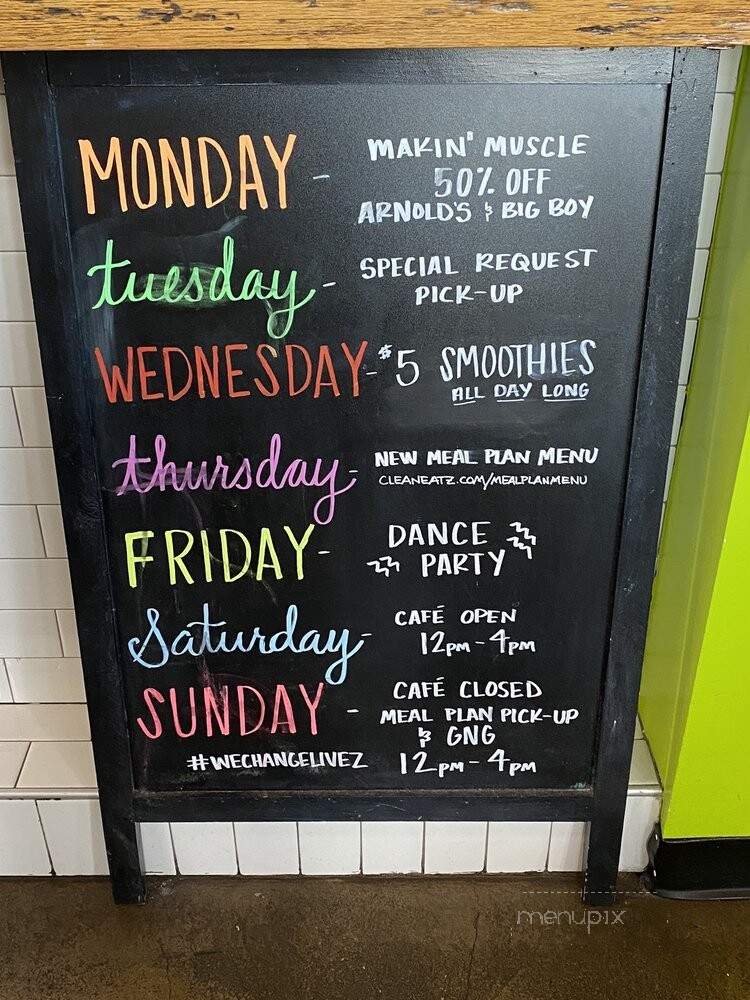 MONDAY - MAKIN' MUSCLE
50% OFF
ARNOLD'S & BIG BOY
tuesday - SPECIAL REQUEST
PICK-UP
WEDNESDAY - $5 SMOOTHIES
ALL DAY LONG
thursday - NEW MEAL PLAN MENU
CLEANEATZ.COM/MEALPLANMENU
FRIDAY - DANCE
PARTY
Saturday - CAFÉ OPEN
12PM - 4PM
SUNDAY - CAFÉ CLOSED
MEAL PLAN PICK-UP
& GNG
#WECHANGELIVEZ 12PM - 4PM
menupix